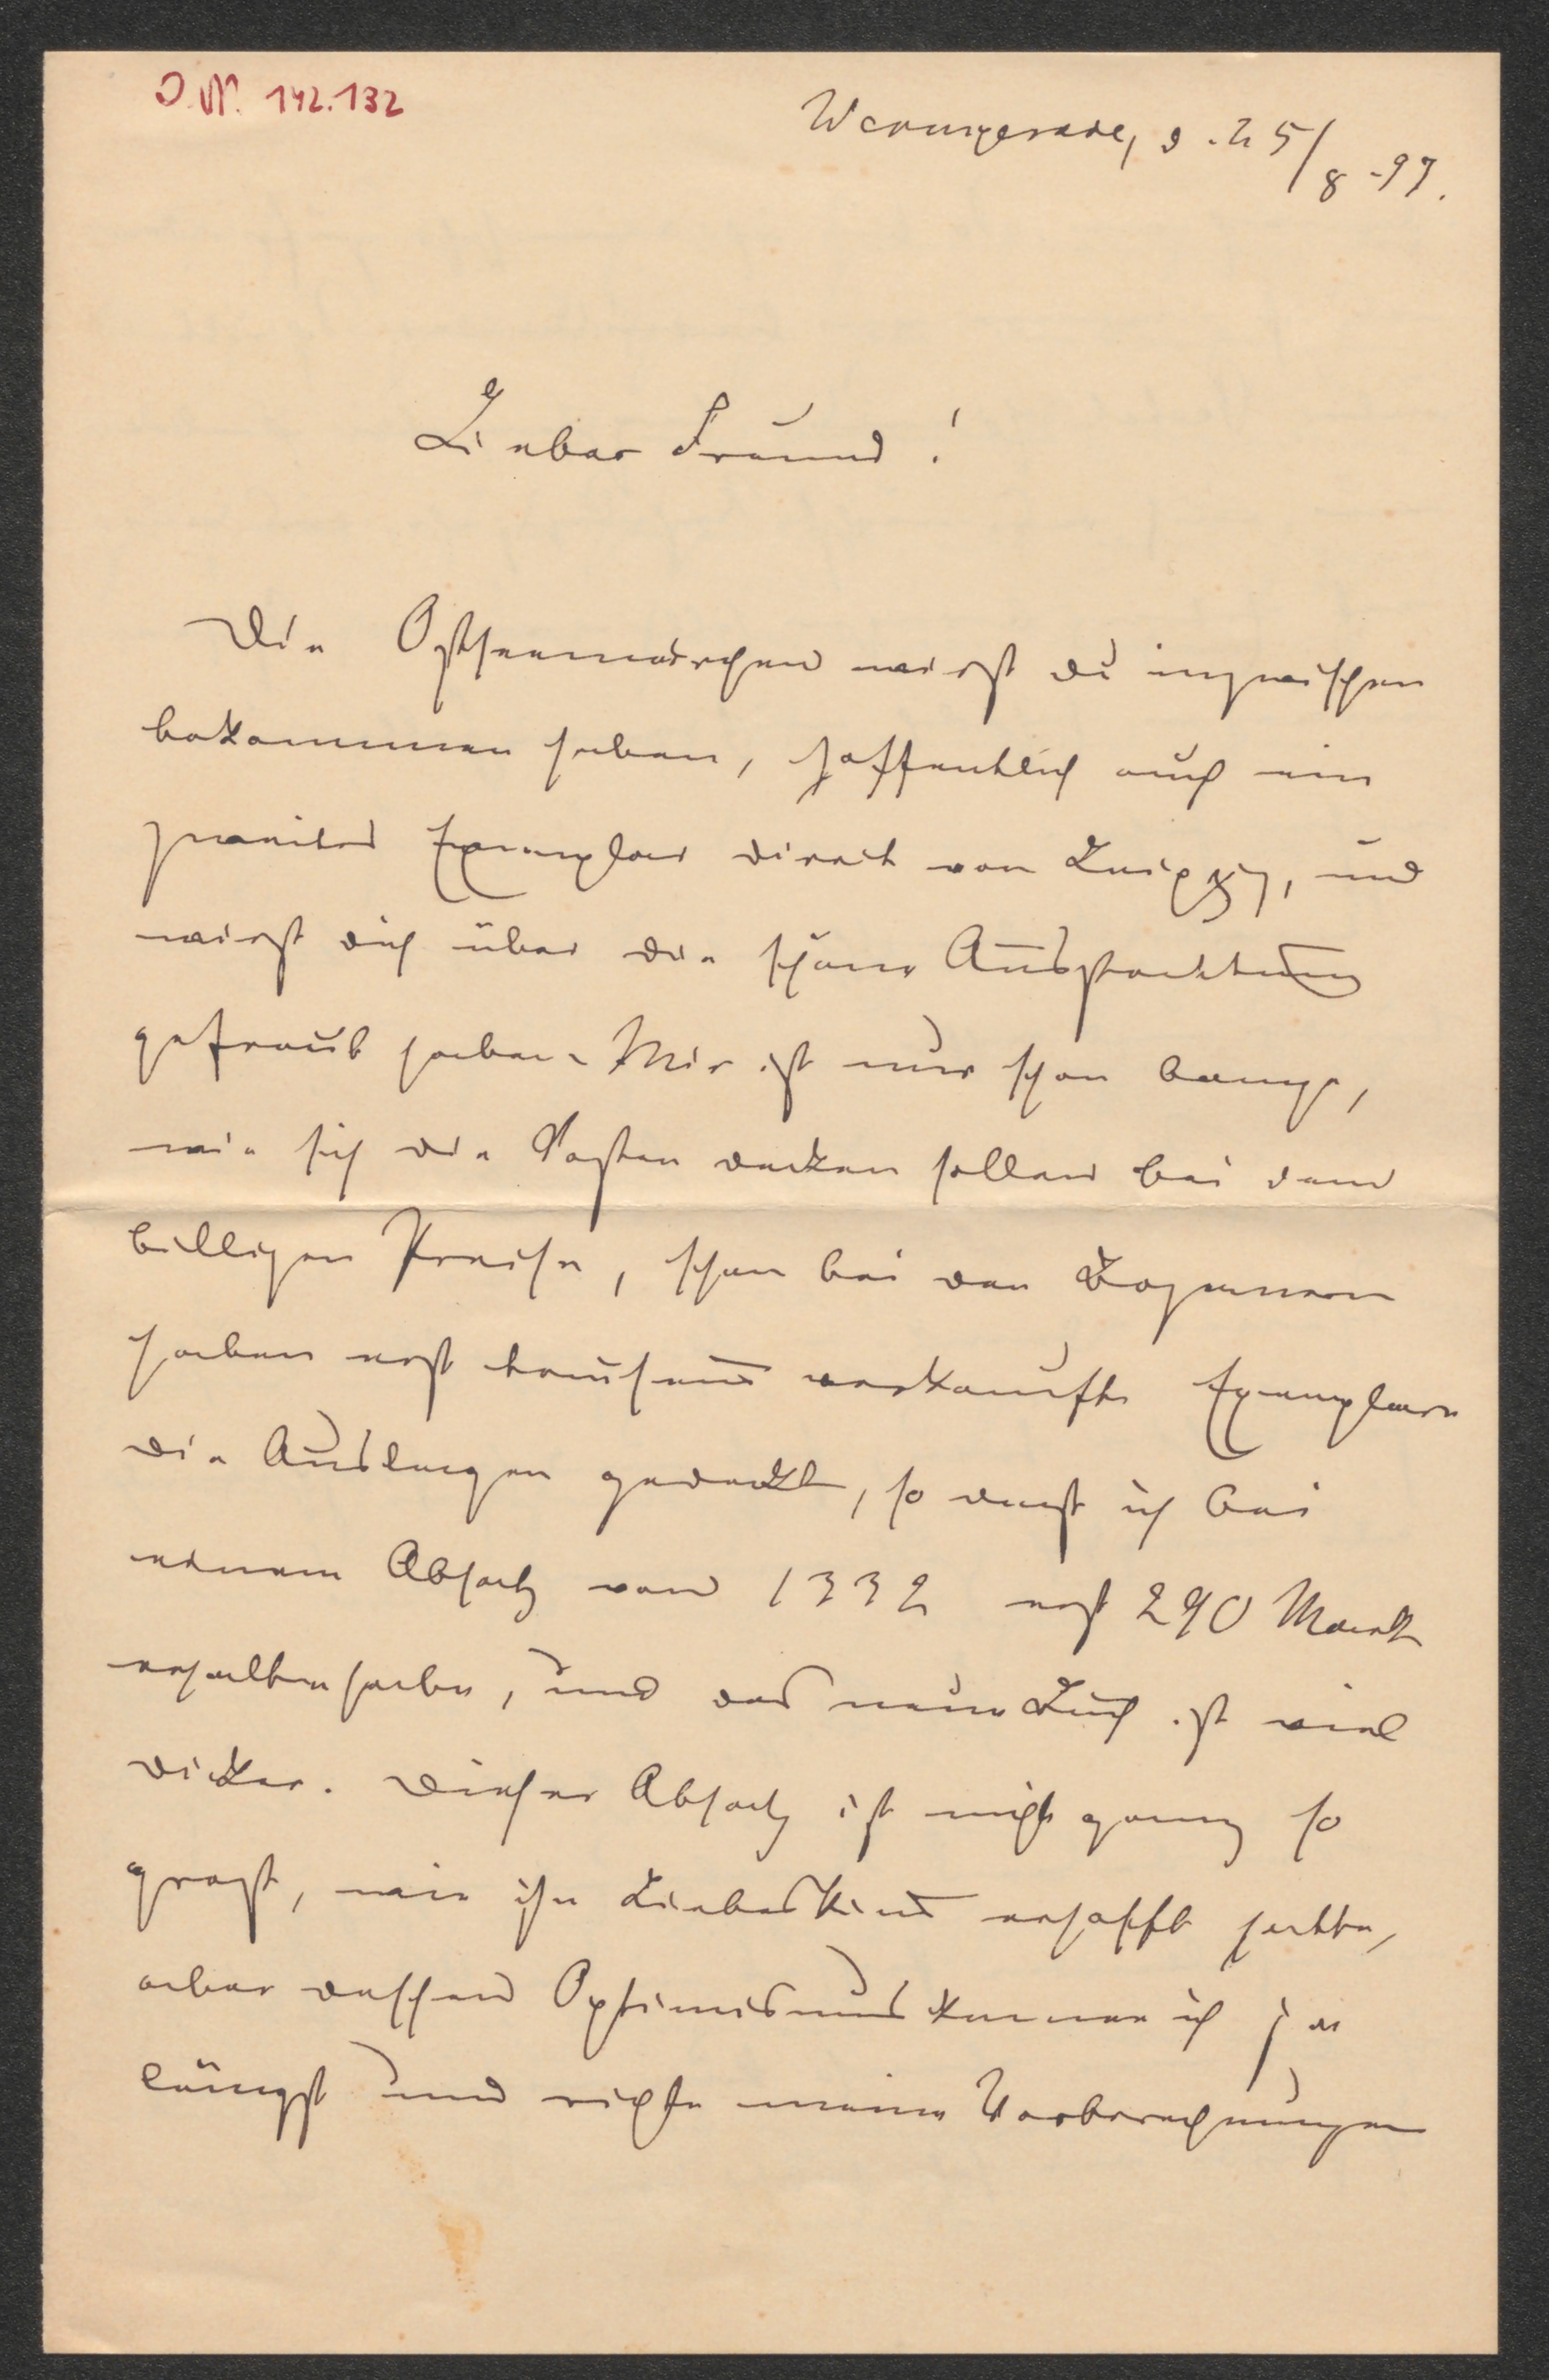 I.N. 142.132
Wernigerode, d. 25/8 -97.
Lieber Freund!
Die Ostseemärchen wirst du inzwischen
bekommen haben, hoffentlich auch ein
zweites Exemplar direct von Leipzig, und
wirst dich über die schöne Ausstattung
gefreut haben. Mir ist nur schon bange,
wie sich die Kosten decken sollen bei dem
billigen Preise, schon bei den
haben erst tausend verkaufte Exemplare
die Auslagen gedeckt, so daß ich bei
einem Absatz von 1332 erst 290 Mark
erhalten habe, und das neue Buch ist viel
dicker. Dieser Absatz ist nicht ganz so
groß, wie ihn Liebeskind erhofft hatte,
aber dessen Optimismus kenne ich ja
längst und richte meine Vorberechnungen